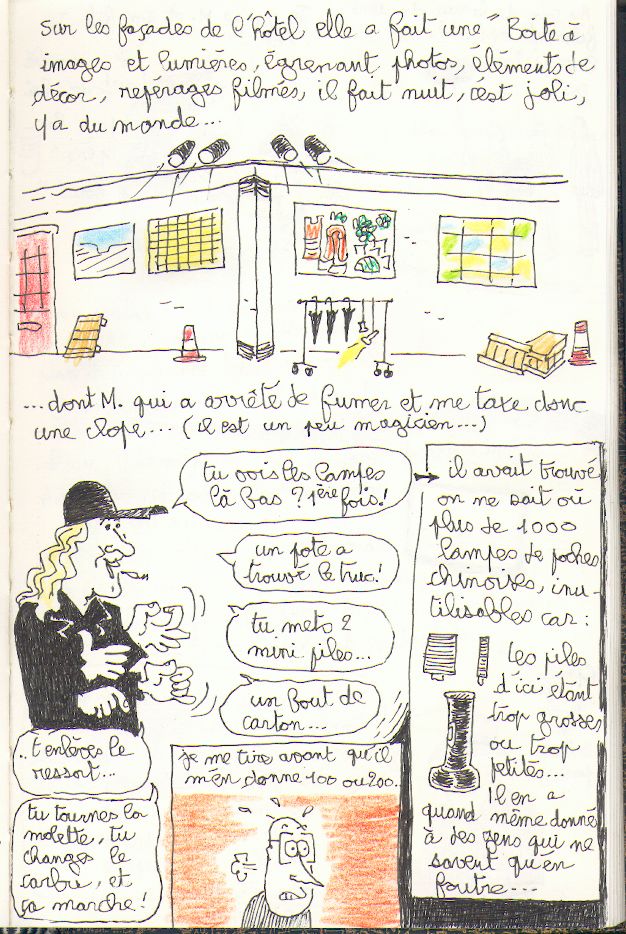 Sur les façades de l'hôtel elle a fait une "Boite à
images et lumières, égrenant photos, éléments de
décor, repérages filmés, il fait nuit, c'est joli,
y a du monde...
...dont M. qui a arrêté de fumer et me taxe donc
une clope... (il est un peu magicien...)
tu vois les lampes
là bas ? 1ère fois !
un pote a
trouvé le truc !
tu mets 2
mini piles...
un bout de
carton...
..t'enlèves le
ressort...
tu tournes la
molette, tu
changes le
carbu, et
ça marche !
je me tire avant qu'il
m'en donne 100 ou 200.
il avait trouvé
on ne sait où
plus de 1000
lampes de poches
chinoises, inu-
tilisables car :
les piles
d'ici étant
trop grosses
ou trop
petites...
Il en a
quand même donné
à des gens qui ne
savent qu'en
foutre...